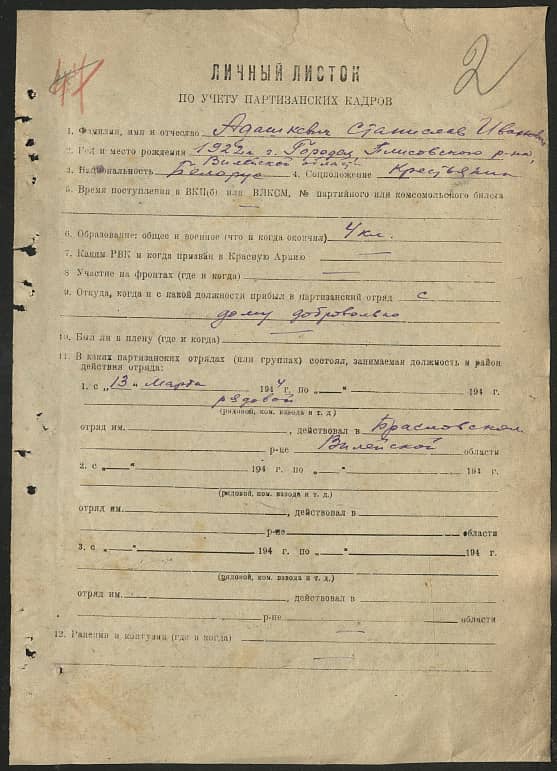 2
ЛИЧНЫЙ ЛИСТОК
ПО УЧЕТУ ПАРТИЗАНСКИХ КАДРОВ
1. Фамилия, имя и отчество Адашкевич Станислав Иванович
2. Год и место рождения 1922 г. Городец Плисовского р-на,
Вилейской область
3. Национальность Беларус 4. Соцположение Крестьянин
5. Время поступления в ВКП(б) или ВЛКСМ, № партийного или комсомольского билета —
6. Образование: общее и военное (что и когда окончил) 4 кл.
7. Каким РВК и когда призван в Красную Армию —
8 Участие на фронтах (где и когда) —
9. Откуда, когда и с какой должности прибыл в партизанский отряд с
дому добровольно
10. Был ли в плену (где и когда) —
11. В каких партизанских отрядах (или группах) состоял, занимаемая должность и район
действия отряда:
1. с „13" марта 1944 г. по „—" 194 г.
рядовой
(рядовой, ком. взвода и т. д.)
отряд им. , действовал в Браславском
р-не Вилейской области
2. с „—" 194 г. по „—" 194 г.
(рядовой, ком. взвода и т. д.)
отряд им. , действовал в
р-не области
3. с „—" 194 г. по „—" 194 г.
(рядовой, ком. взвода и т. д.)
отряд им. , действовал в
р-не области
12. Ранения и контузии (где и когда) —
—